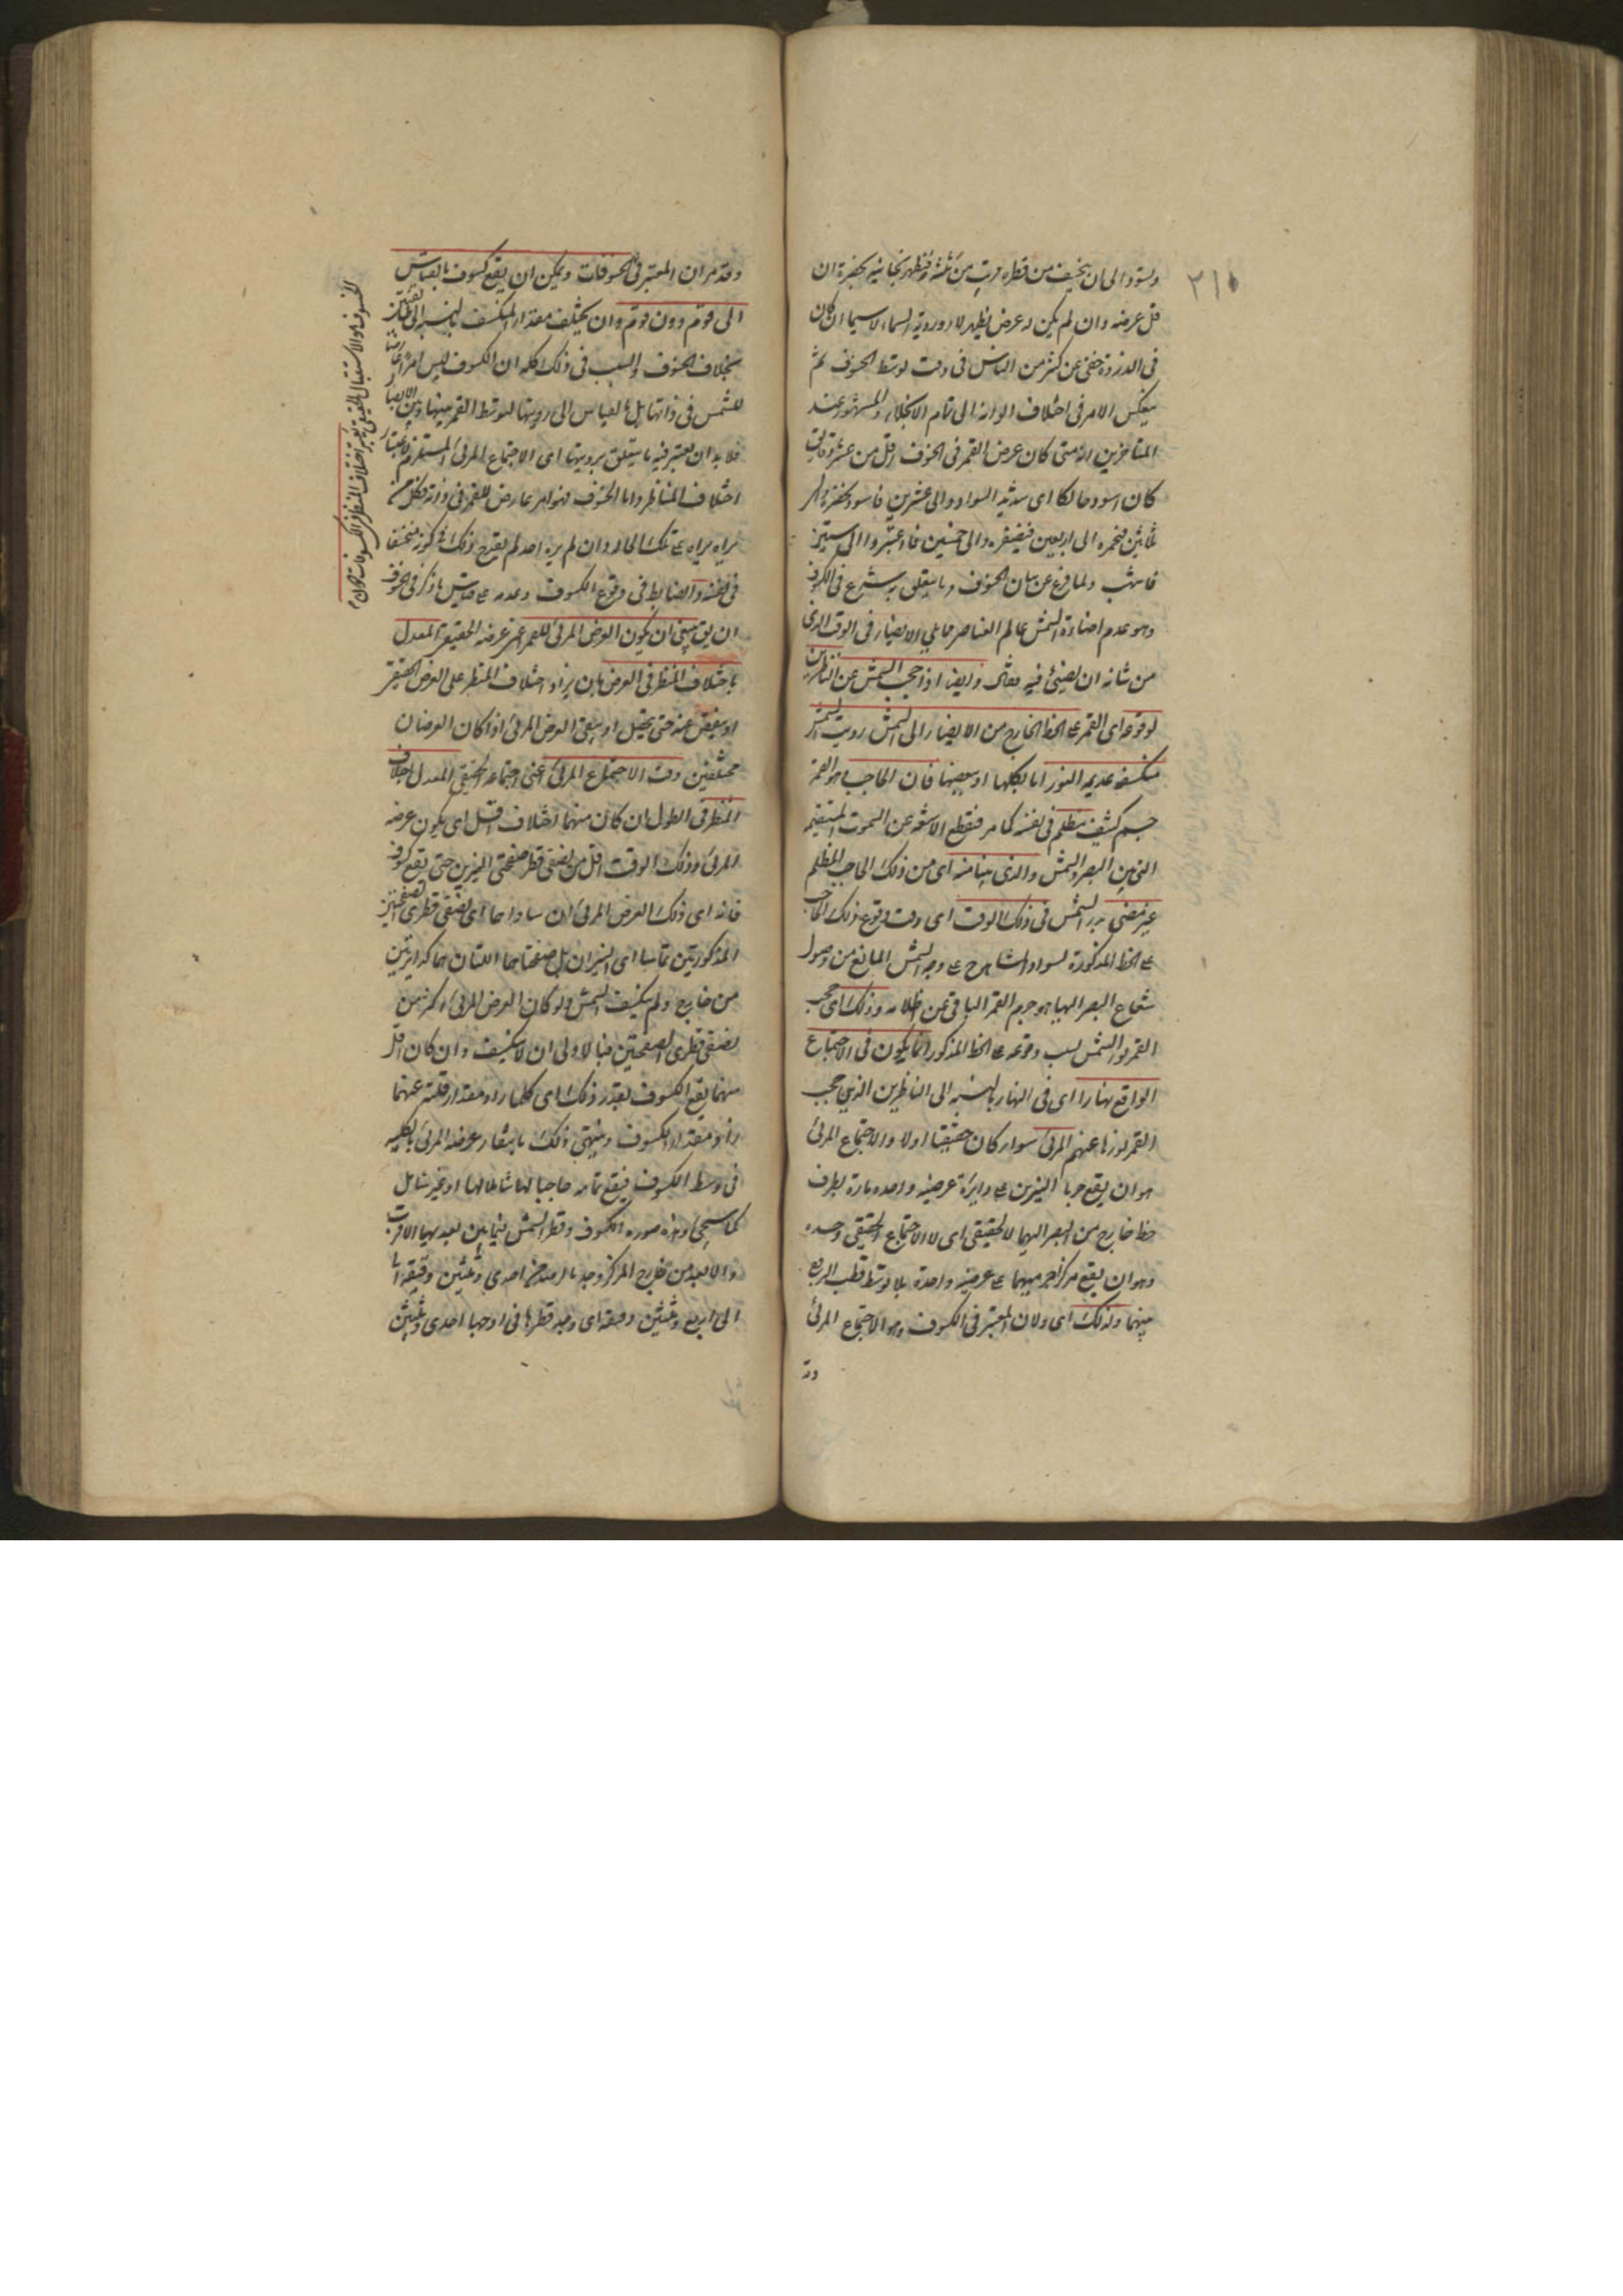 ٣١٠
وتسود الى ان ينخسف من قطره قريب من ثلثه فيظهر نحاسية بخضرة ان
قل عرضه وان لم يكن له عرض يظهر لازوردية السماء لاسيما ان كان
فى الذروة خفى عن كثير من الناس فى وقت توسط الخسوف ثم
ينعكس الامر فى اختلاف الوانه الى تمام الانجلاء والمشهور عند
المتاخرين انه متى كان عرض القمر فى الخسوف اقل من عشر دقايق
كان اسود حالكا اى شديد السواد والى عشرين فاسود بخضرة والى
ثلاثين بحمرة الى اربعين فبصفرة والى خمسين فاغبر والى ستين
فاشهب ولما فرغ عن بيان الخسوف وما يتعلق به شرع فى الكسوف
وهو عدم اضاءة الشمس عالم العناصر مما يلى الابصار فى الوقت الذى
من شانه ان يضئ فيه فقال وايضا اذا حجب الشمس عن الناظرين
لوقوعه اى القمر على الخط الخارج من الابصار الى الشمس رويت الشمس
منكسفة عديمة النور اما بكلها او ببعضها فان الحاجب هو القمر
جسم كثيف مظلم فى نفسه كما مر فيقطع الاشعة عن السموت المستقيمة
التى بين البصر والشمس والذى بيننا منه اى من ذلك الحاجب المظلم
غير مضئ بنور الشمس فى ذلك الوقت اى وقت وقوع ذلك الحاجب
على الخط المذكور فالسواد المشاهد على وجه الشمس المانع من وصول
شعاع البصر اليها هو جرم القمر الباقى عن ظلامه وذلك اى حجب
القمر نور الشمس بسبب وقوعه على الخط المذكور انما يكون فى الاجتماع
الواقع نهارا اى فى النهار بالنسبة الى الناظرين الذين حجب
القمر نورها عنهم المرئى سواء كان حقيقيا اولا والاجتماع المرئى
هو ان يقع جرما النيرين على دايرة عرضية واحدة مارة بطرف
خط خارج من البصر اليهما لا الحقيقى اى لا الاجتماع الحقيقى وحده
وهو ان يقع مركز جرميهما على عرضية واحدة بلا توسط قطب البروج
بينهما ولذلك اى ولان المعتبر فى الكسوف هو الاجتماع المرئى
وقد
وقد مر ان المعتبر فى الخسوفات ويمكن ان يقع كسوف بالقياس
الى قوم دون قوم وان يختلف مقدار المنكسف بالنسبة الى طائفتين
بخلاف الخسوف والسبب فى ذلك كله ان الكسوف ليس امرا عارضا
للشمس فى ذاتها بل بالقياس الى رويتها لتوسط القمر بينها وبين الابصار
فلا بد ان يعتبر فيه ما يتعلق برويتها اى الاجتماع المرئى المستلزم لاعتبار
اختلاف المناظر واما الخسوف فهو امر عارض للقمر فى ذاته فكل من
يراه يراه على تلك الحال وان لم يره احد لم يقدح ذلك فى كونه منخسفا
فى نفسه والضابط فى وقوع الكسوف وعدمه على قياس ما ذكر فى الخسوف
ان يق ينبغى ان يكون العرض المرئى للقمر اعنى عرضه الحقيقى المعدل
باختلاف المنظر فى العرض بان يزاد اختلاف المنظر على العرض الحقيقى
او ينقص عنه حتى يحصل او يبقى العرض المرئى اذا كان العرضان
مختلفين وقت الاجتماع المرئى اعنى اجتماعه الحقيقى المعدل باختلاف
المنظر فى الطول ان كان منهما اختلاف اقل اى يكون عرضه
المرئى فى ذلك الوقت اقل من نصفى قطر صفحتى النيرين حتى يقع كسوف
فانه اى ذلك العرض المرئى ان ساواهما اى نصفى قطرى الصفحتين
المذكورتين تماسا اى النيران بل صفحتاهما اللتان هما كدايرتين
من خارج ولم ينكسف الشمس ولو كان العرض المرئى اكثر من
نصفى قطرى الصفحتين فبالاولى ان لا ينكسف وان كان اقل
منهما يقع الكسوف بقدر ذلك اى كلما زاد مقدار قلته عنهما
زاد مقدار الكسوف وينتهى ذلك بانتفاء عرضه المرئى بالكلية
فى وسط الكسوف فيقع تمامه حاجبا لها شاملا لها او غير شامل
كما سيجئ وهذه صورة الكسوف وقطر الشمس فيما بين بعديها الاقرب
والابعد من خارج المركز وجد بالرصد من احدى وثلثين دقيقة
الى اربع وثلثين دقيقة اى وجد قطرها فى اوجها احدى وثلثين
الخسوف هو الاستقبال الحقيقى يعتبر اختلاف المنظر فى الكسوفات دون